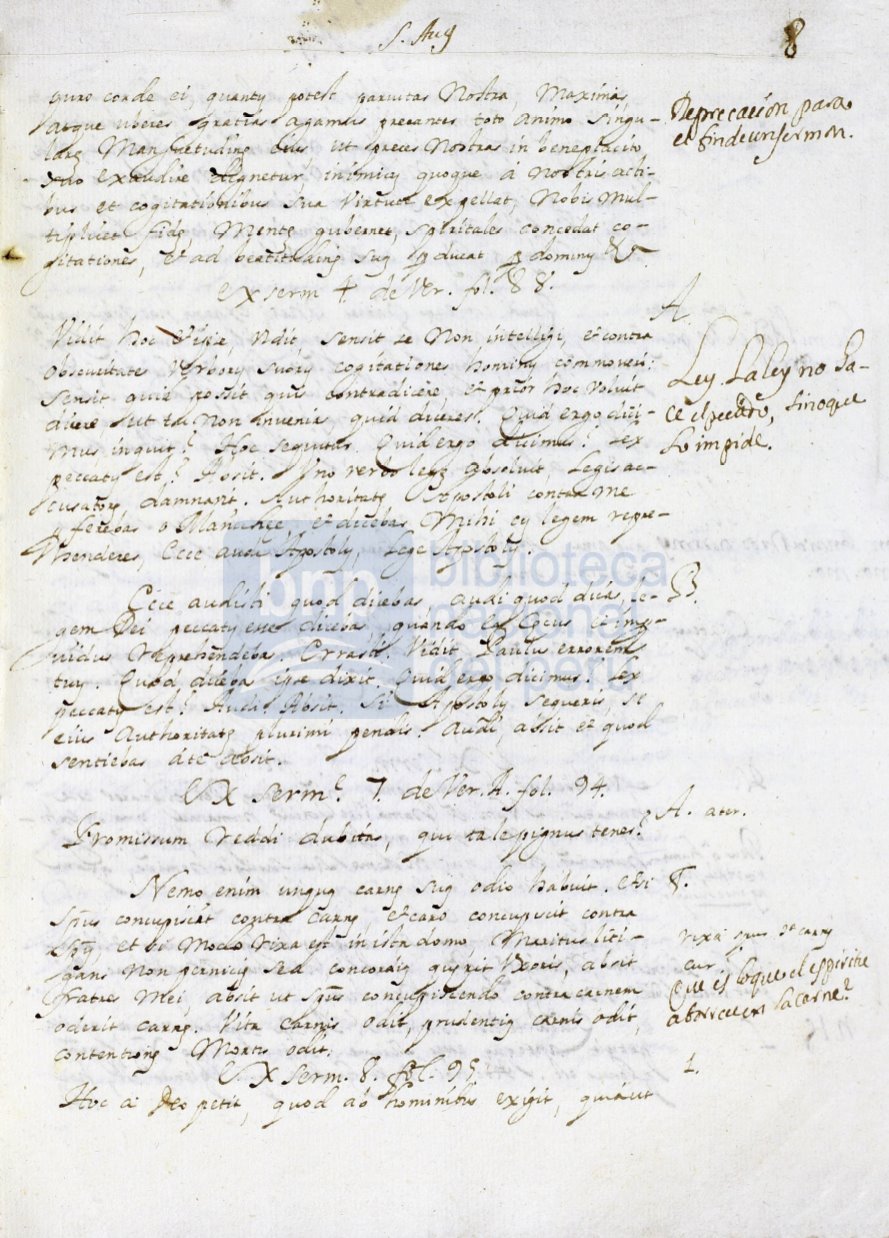 S. Aug
8
puro corde ei, quantū potest parvitas Nostra, Maximas,
atque uberes gratias agamus precantes toto animo singu-
larē Mansuetudinē eius ut preces Nostras in beneplacito
suo exaudire dignetur inimicū quoque á nostris acti-
bus et cogitationibus sua virtute expellat, Nobis Mul-
tiplicet fidē Mentē gubernet, spiritales concedat co-
gitationes, et ad beatitudinē suā pducat p dominū &
Deprecacion para
el fin de un sermon.
Ex serm 4. de Ver. fol. 88.
A
Vidit hoc et ipse, Vidit sensit se Non intelligi, et contra
obscuritate Verborū suorū cogitationes hominū commoveri:
sensit quid possit quis contradicere, et prior hoc voluit
dicere ut tu Non invenias quid diceres. Quid ergo dici-
mus inquit? Hoc sequitur. Quid ergo dicimus? Lex
peccatū est? Absit. Vno verbo legē absolvit, Legis ac-
cusatorē damnavit. Authoritatē Apostoli contra me
ferebas o Manichęe, et dicebas Mihi cū legem repre-
henderes, Ecce audi Apostolū, Lege Apostolū.
Ley. La ley no ha-
ce el pecado, sino que
lo impide.
Ecce audisti quod dicebas audi quod dicis, le-
B.
gem Dei peccatū esse dicebas quando cęcus et imp-
vidus reprehendebas. Errasti. Vidit Paulus errorem
tuū. Quod dicebas ipse dixit. Quid ergo dicimus? Lex
peccatū est? Audi. Absit. Si Apostolū sequeris, si
eius Authoritatē plurimi pendis. Audi, absit et quod
sentiebas á te absit.
Ex Serm.e 7. de Ver. A. fol. 94.
Promissum reddi dubitas, qui tale pignus tenes?
A. ater.
Nemo enim unquā carnē suā odio habuit. Etsi
8.
spūs concupiscit contra carnē et caro concupiscit contra
spū, et si Modo rixa est in ista domo Maritus liti-
gans non perniciē sed concordiā quęrit Uxoris, absit
fratres Mei, absit ut spūs concupiscendo contra carnem
oderit carnē. Vitia carnis odit, prudentiā carnis odit,
contentionē Mortis odit.
rixa spus carnē
cur
Que es lo que el espiritu
aborrece en la carne?
Ex Serm. 8. fol. 95.
1.
Hoc a Deo petit, quod ab hominibus exigit, quia ut